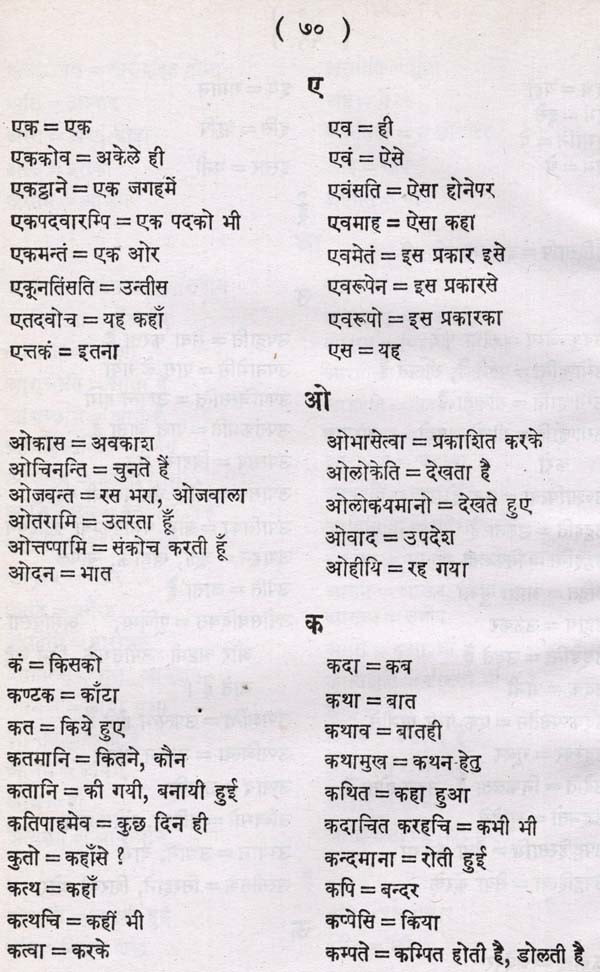 ( ७० )
ए
एक = एक
एककोव = अकेले ही
एकट्ठाने = एक जगहमें
एकपदवारम्पि = एक पदको भी
एकमन्तं = एक ओर
एकूनतिंसति = उन्तीस
एतदवोच = यह कहाँ
एत्तकं = इतना
एव = ही
एवं = ऐसे
एवंसति = ऐसा होनेपर
एवमाह = ऐसा कहा
एवमेतं = इस प्रकार इसे
एवरूपेन = इस प्रकारसे
एवरूपो = इस प्रकारका
एस = यह
ओ
ओकास = अवकाश
ओचिनन्ति = चुनते हैं
ओजवन्त = रस भरा, ओजवाला
ओतरामि = उतरता हूँ
ओत्तप्पामि = संकोच करती हूँ
ओदन = भात
ओभासेत्वा = प्रकाशित करके
ओलोकेति = देखता है
ओलोकयमानो = देखते हुए
ओवाद = उपदेश
ओहीयि = रह गया
क
कं = किसको
कण्टक = काँटा
कत = किये हुए
कतमानि = कितने, कौन
कतानि = की गयी, बनायी हुई
कतिपाहमेव = कुछ दिन ही
कुतो = कहाँसे ?
कत्थ = कहाँ
कत्थचि = कहीं भी
कत्वा = करके
कदा = कब
कथा = बात
कथाव = बातही
कथामुख = कथन हेतु
कथित = कहा हुआ
कदाचित करहचि = कभी भी
कन्दमाना = रोती हुई
कपि = बन्दर
कप्पेसि = किया
कम्पते = कम्पित होती है, डोलती है